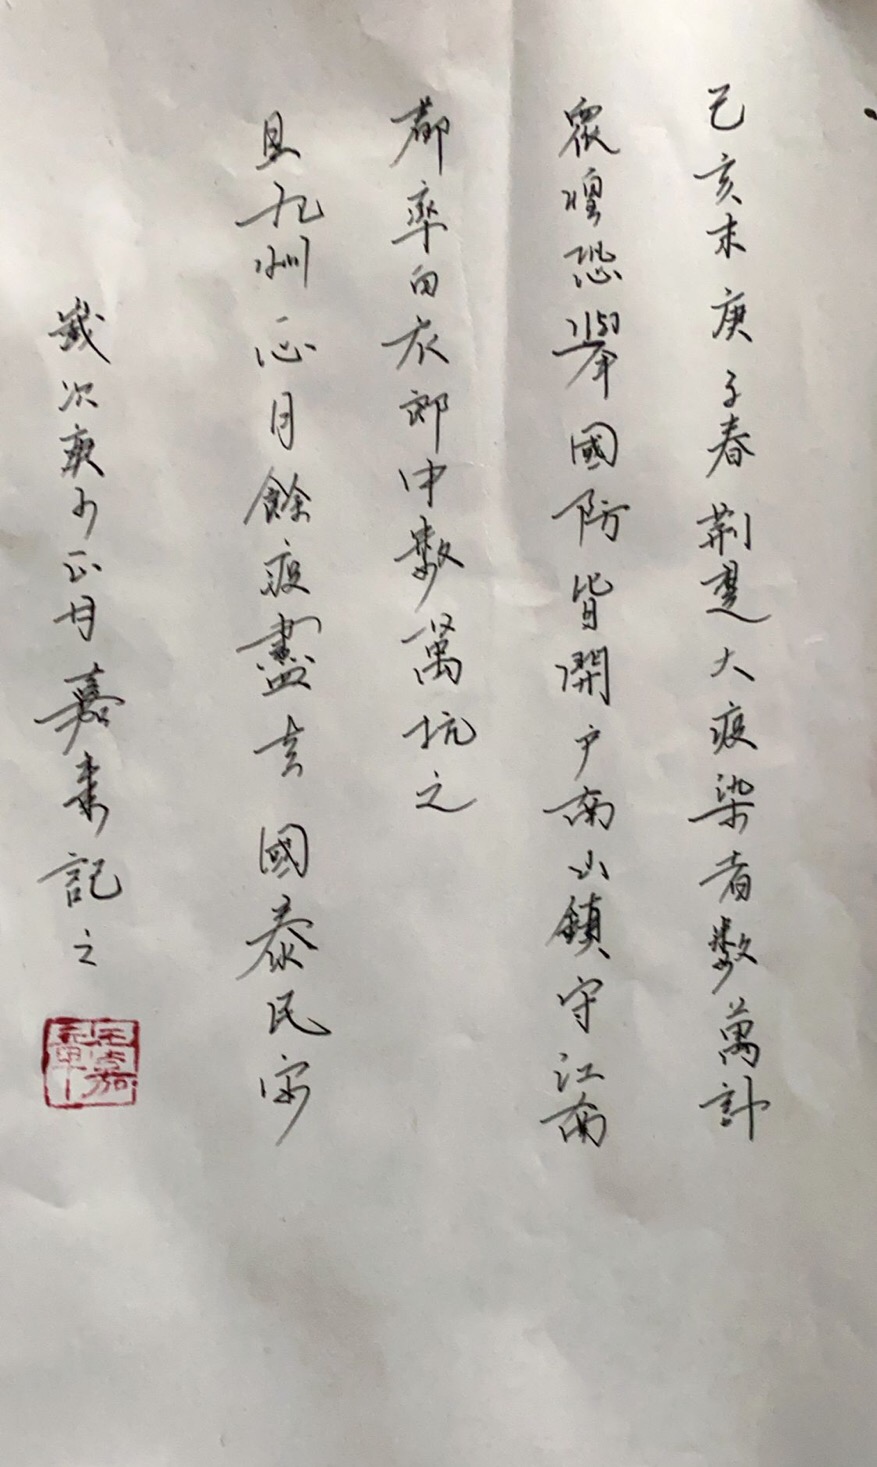 己亥末庚子春荊楚大疫染者數萬計
眾惶恐舉國防皆閉戶南山鎮守江南
都率白衣郎中數萬抗之
且九州一心月餘疫盡去國泰民安
歲次庚子正月嘉記之